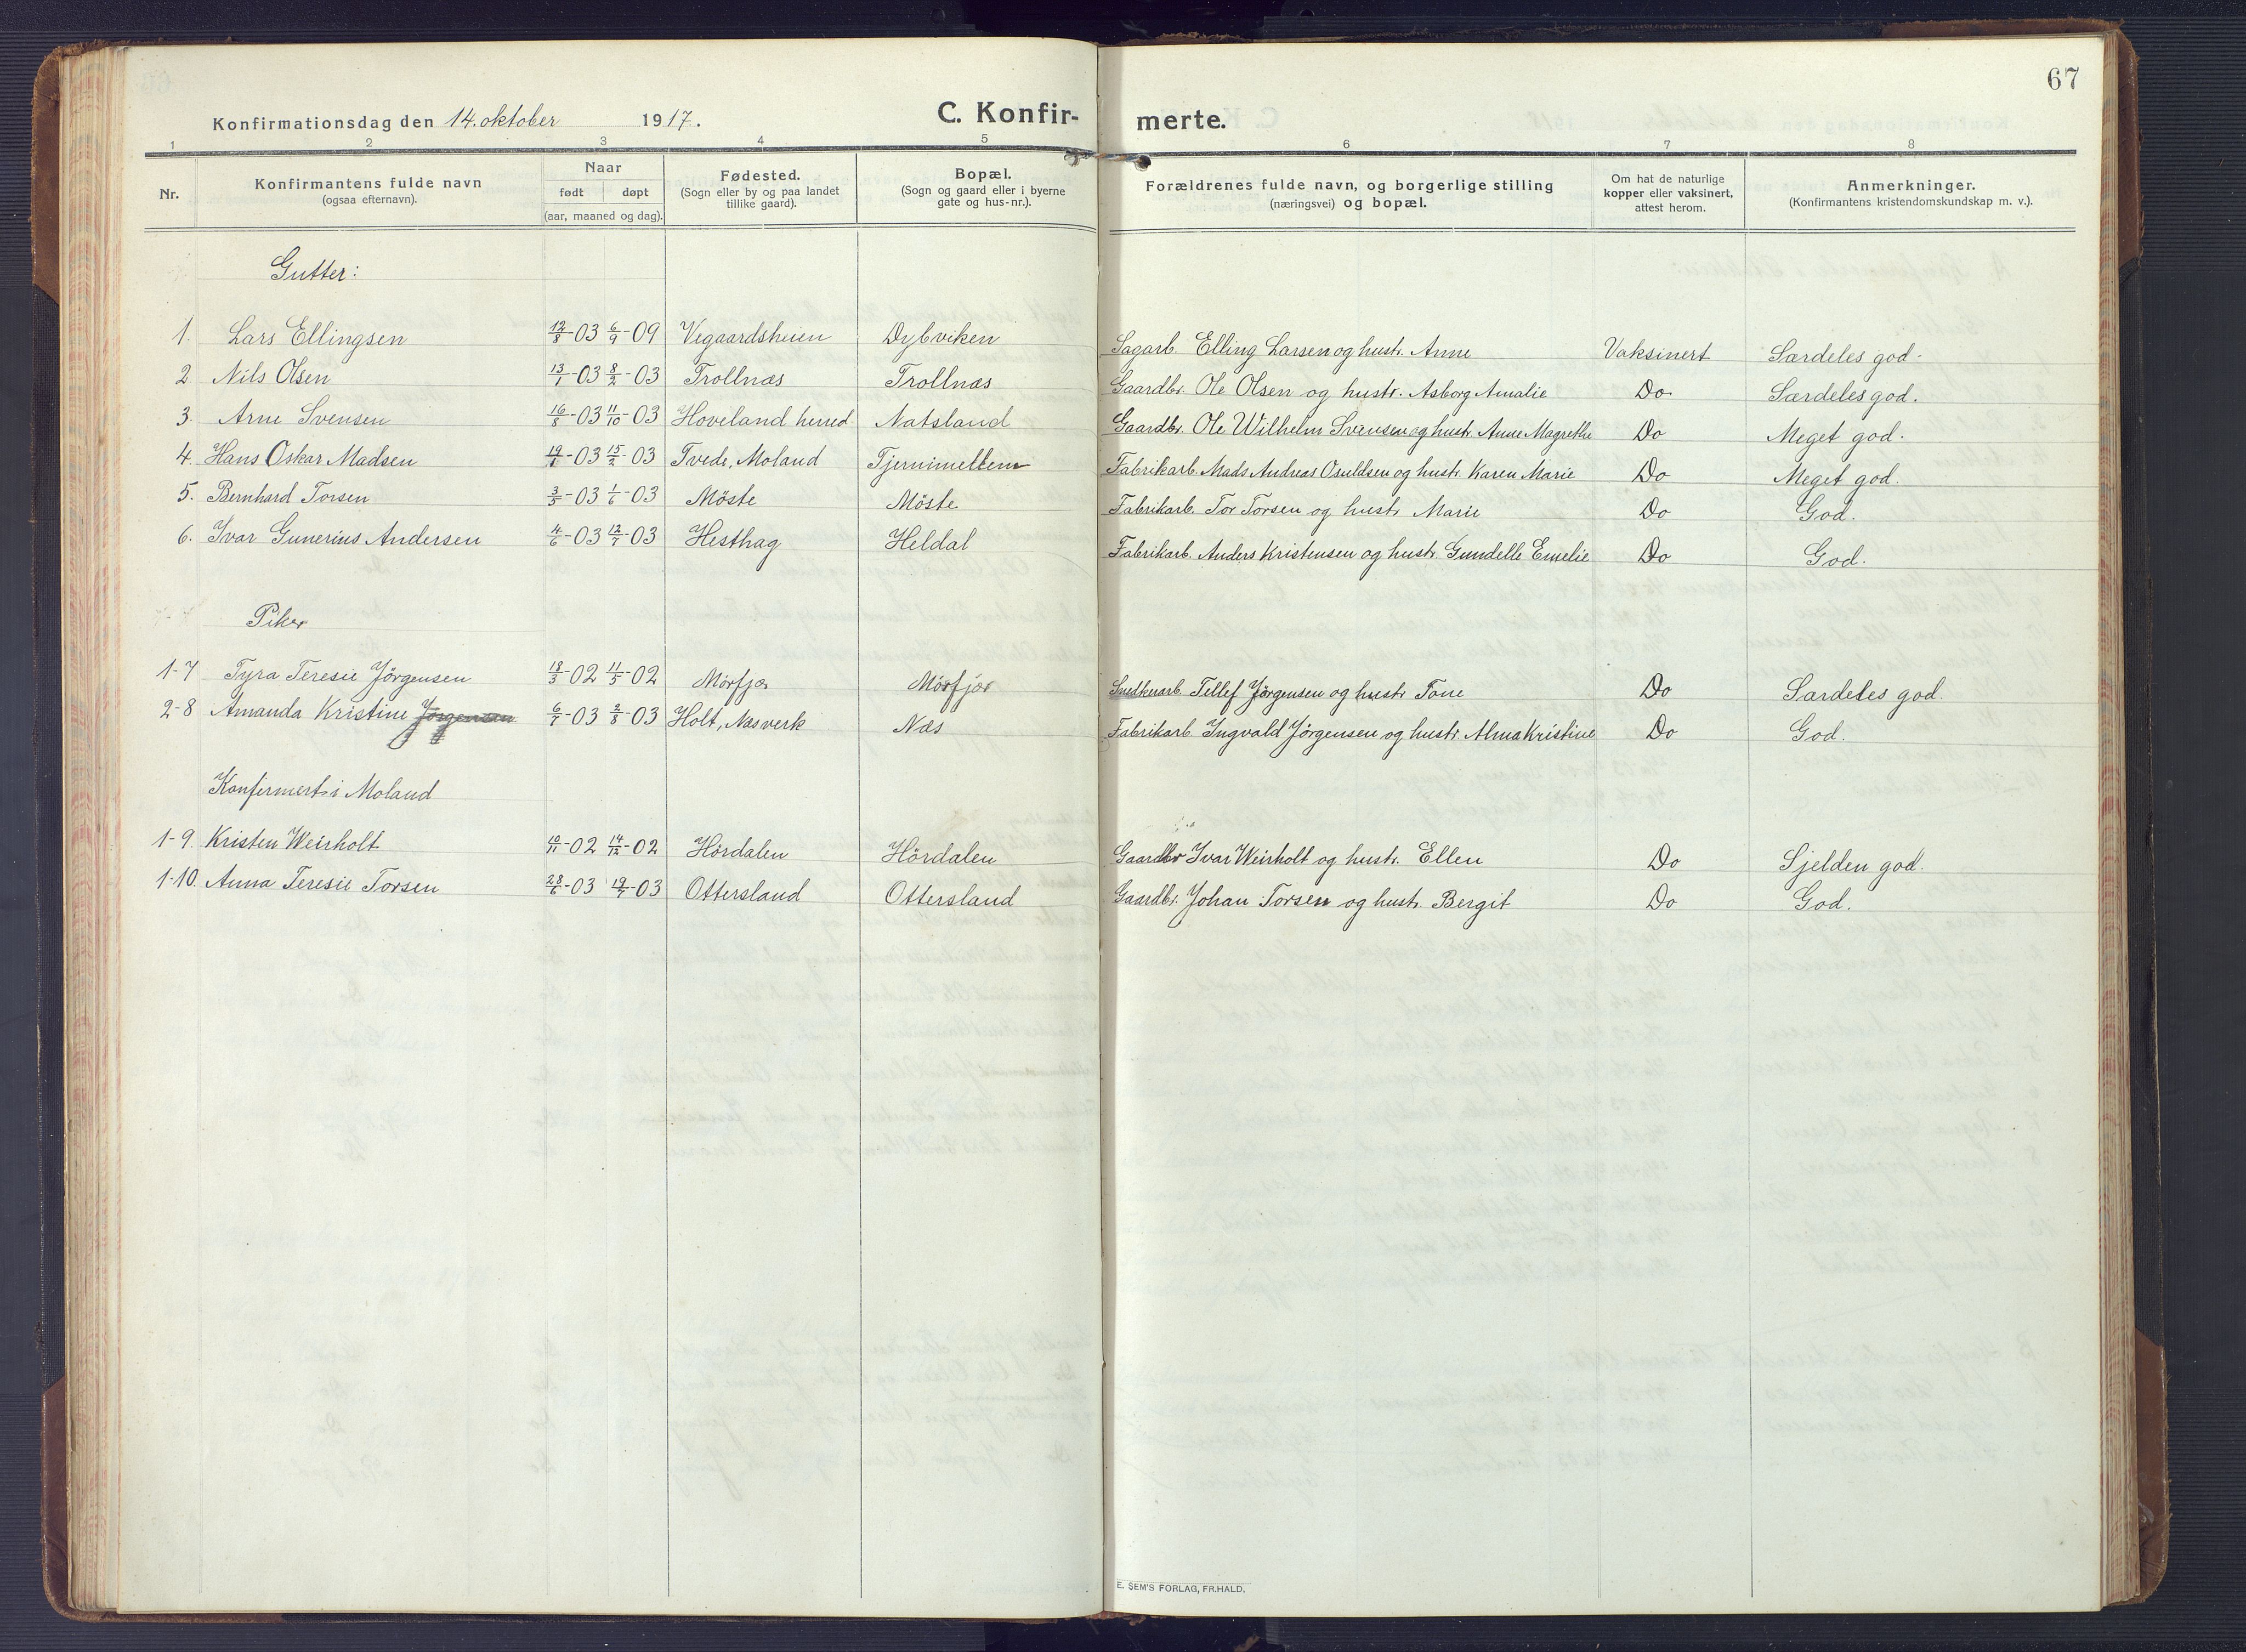 67
Konfirmationsdag den 14. oktober 1917.
C. Konfir-
merte.
1 2 3 4 5 6 7 8
Nr.
Konfirmantens fulde navn
(ogsaa efternavn).
Naar
født døpt
(aar, maaned og dag).
Fødested.
(Sogn eller by og paa landet
tillike gaard).
Bopæl.
(Sogn og gaard eller i byerne
gate og hus-nr.).
Forældrenes fulde navn, og borgerlige stilling
(næringsvei) og bopæl.
Om hat de naturlige
kopper eller vaksinert,
attest herom.
Anmerkninger.
(Konfirmantens kristendomskundskap m. v.).
Gutter:
1. Lars Ellingsen 12/8-03 6/9-09 Vegaardsheien Dybviken Sagarb. Elling Larsen og hustr. Anne Vaksinert Særdeles god.
2 Nils Olsen 13/1-03 8/2-03 Trollnæs Trollnæs Gaardbr. Ole Olsen og hustr. Asborg Amalie Do Særdeles god.
3. Arne Svensen 16/8-03 11/10-03 Hoveland herred Natsland Gaardbr. Ole Wilhelm Svensen og hustr. Anne Magrethe Do Meget god.
4. Hans Oskar Madsen 19/1-03 15/2-03 Tvede, Moland Tjernimellem Fabrikarb. Mads Andreas Osuldsen og hustr. Karen Marie Do Meget god.
5. Bernhard Torsen 3/5-03 1/6-03 Möste Möste Fabrikarb. Tor Torsen og hustr Marie Do God.
6. Ivar Gunerius Andersen 4/6-03 12/7-03 Hesthag Heldal Fabrikarb. Anders Kristensen og hustr. Gundelle Emelie Do God.
Piker
1-7 Tyra Teresie Jörgensen 18/3-02 11/5-02 Mörfjær Mörfjær Snedkerarb. Tellef Jörgensen og hustr Tone Do Særdeles god.
2-8 Amanda Kristine Jörgensen 6/7-03 2/8-03 Holt, Næsverk Næs Fabrikarb. Ingvald Jörgensen og hustr. Alma Kristine Do God.
Konfirmert i Moland
1-9. Kristen Weirholt 10/11-02 14/12-02 Hördalen Hördalen Gaardbr Ivar Weirholt og hustr. Ellen Do Sjelden god.
1-10. Anna Teresie Torsen 28/6-03 19/7-03 Ottersland Ottersland Gaardbr. Johan Torsen og hustr. Bergit Do God.
E. SEM'S FORLAG, FR.HALD.